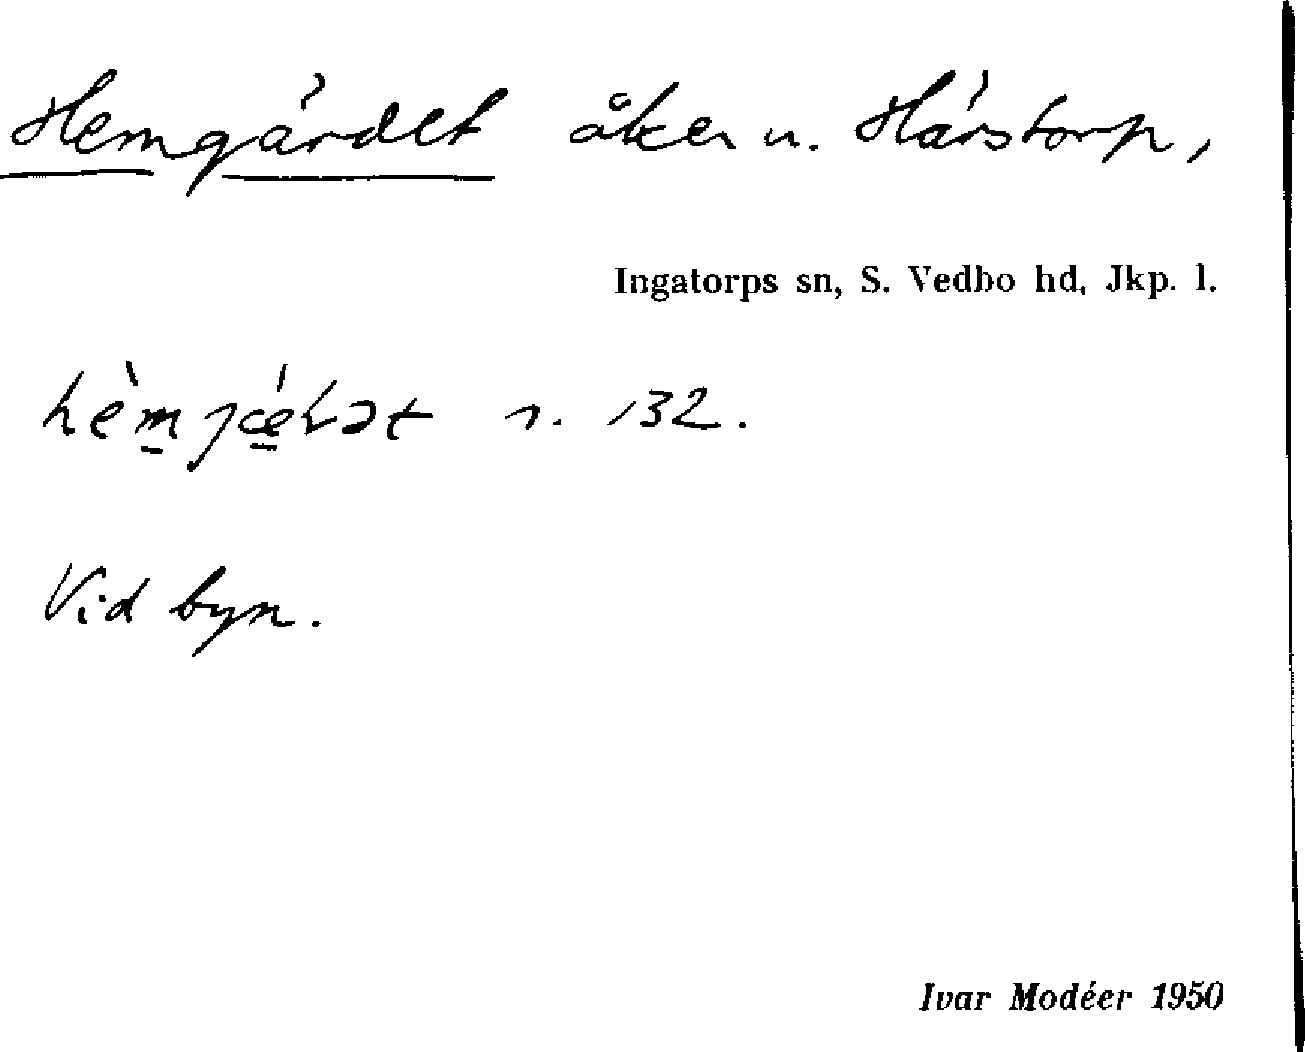 Hemgärdet åker u. Härstorp,
Ingatorps sn, S. Vedbo hd, Jkp. l.
n. 132.
Vid byn.
Ivar Modéer 1950